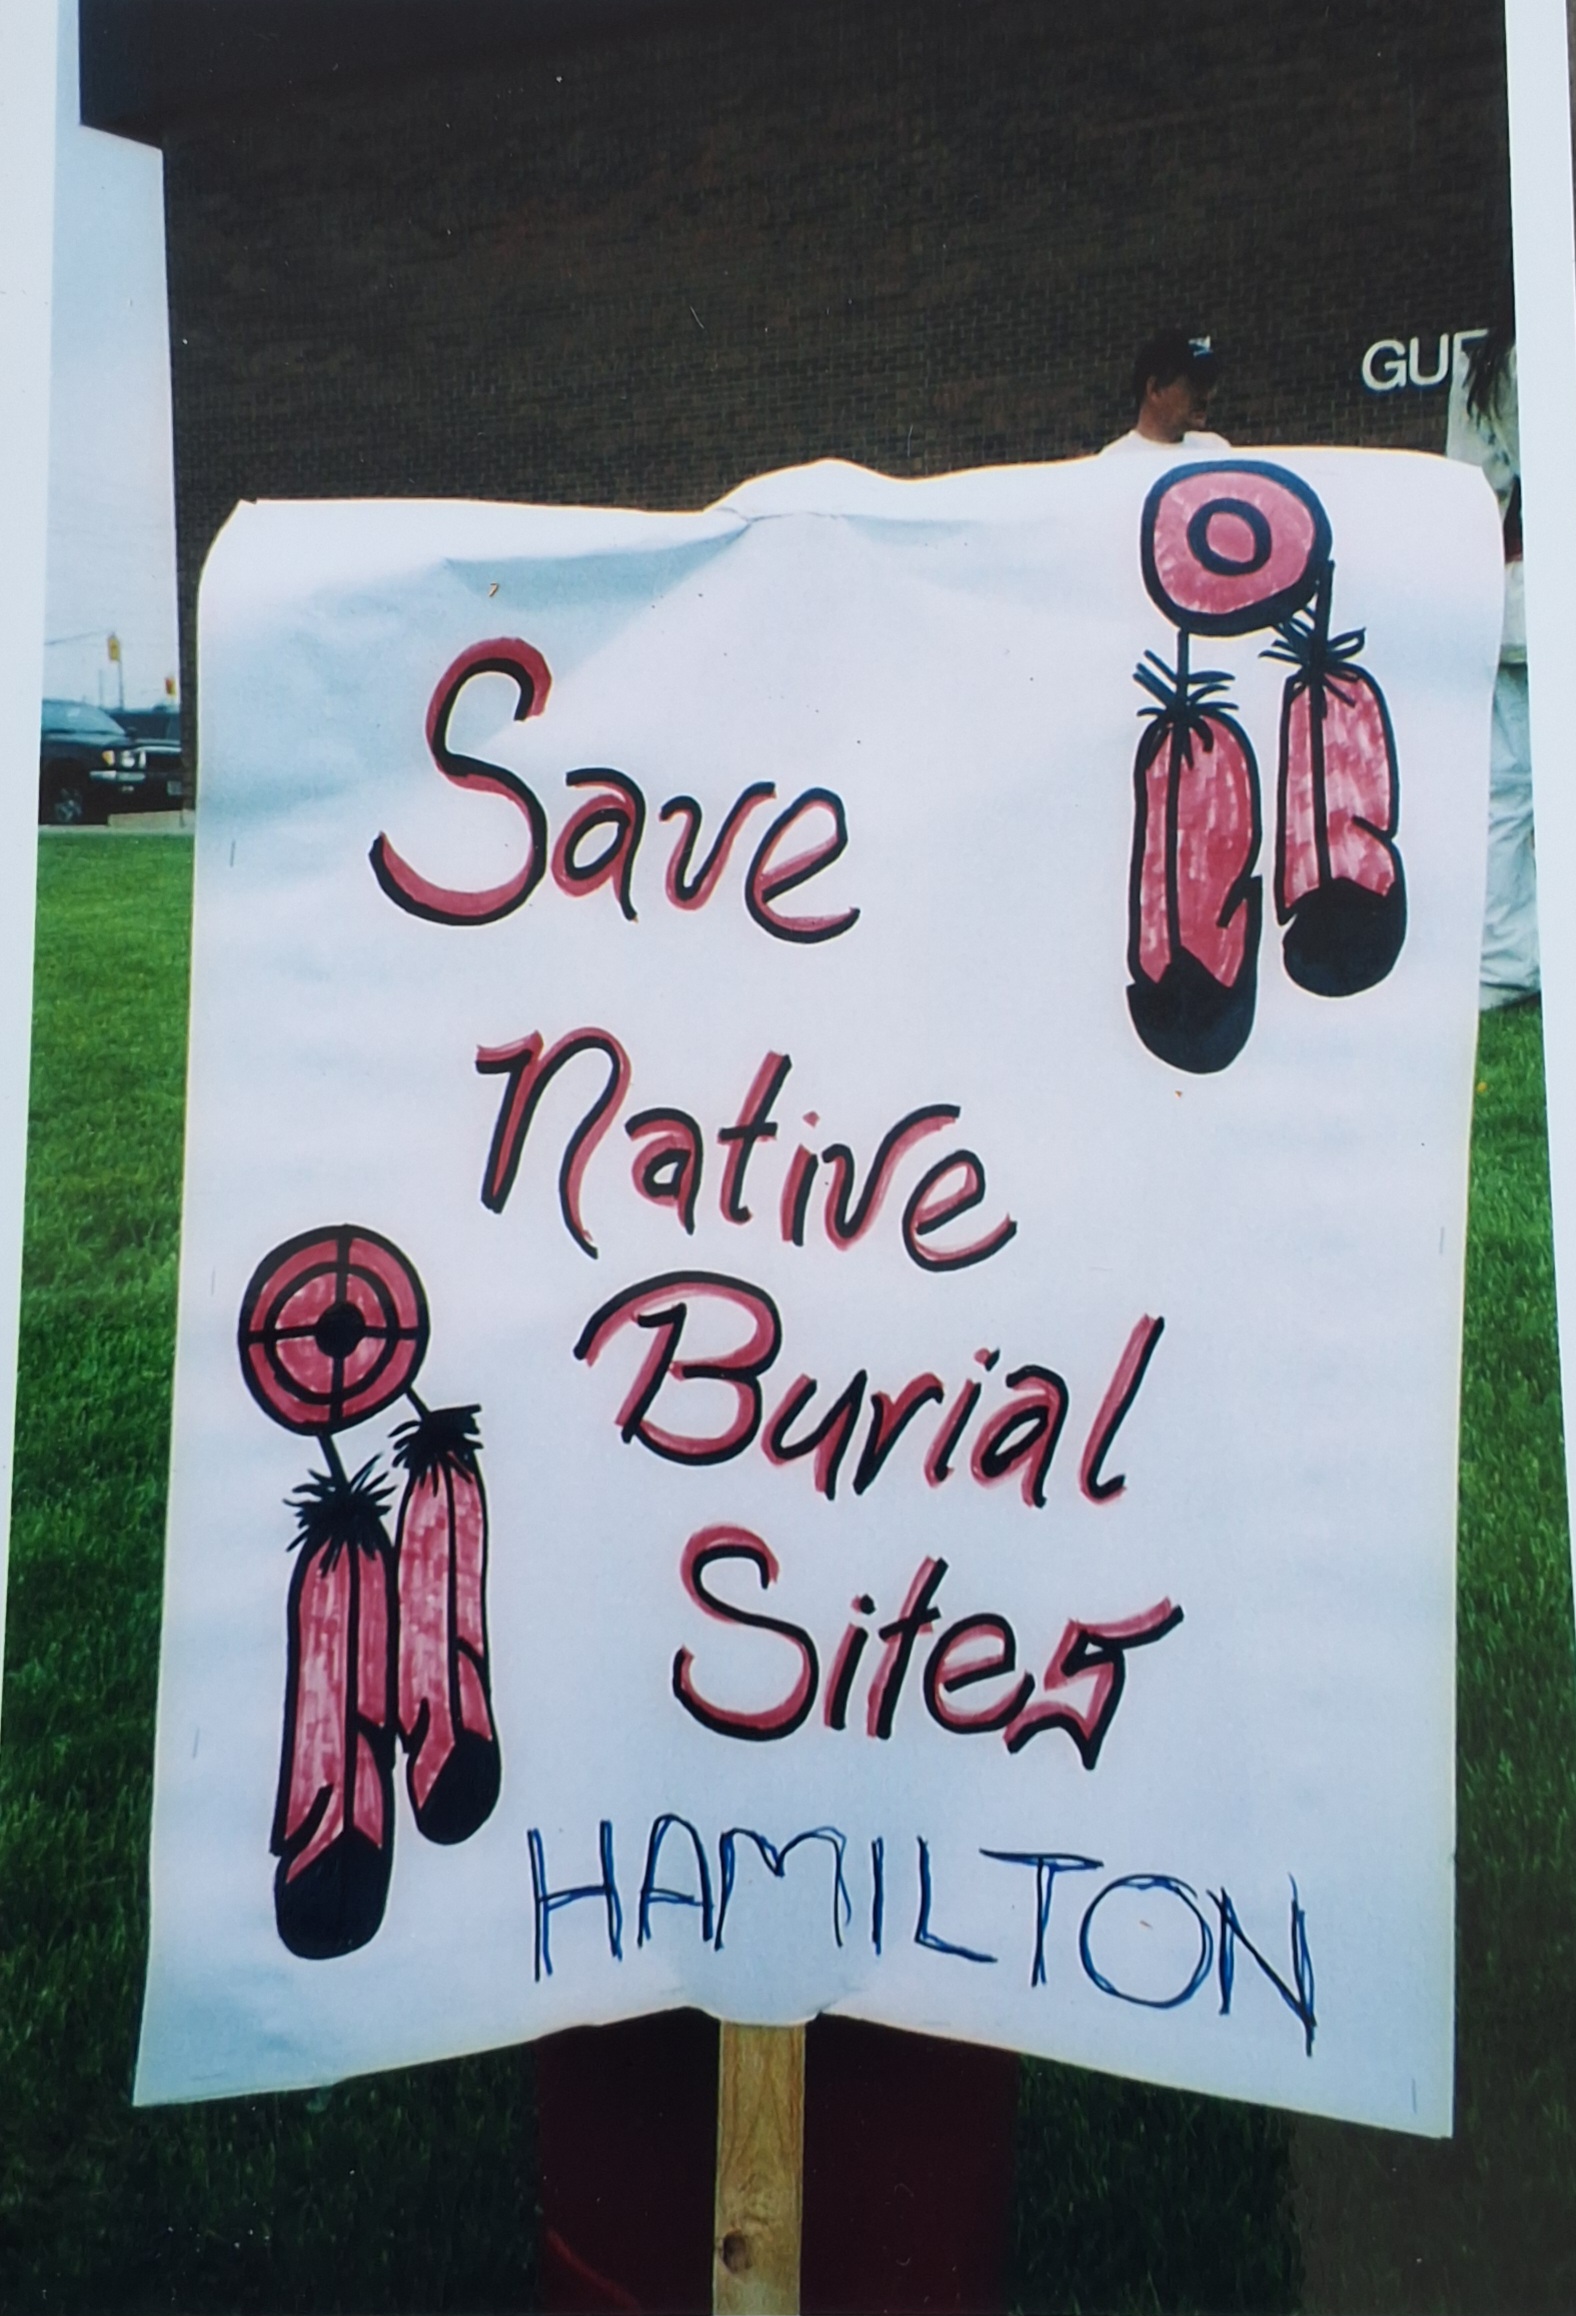 GUE
Save
Native
Burial
Sites
HAMILTON